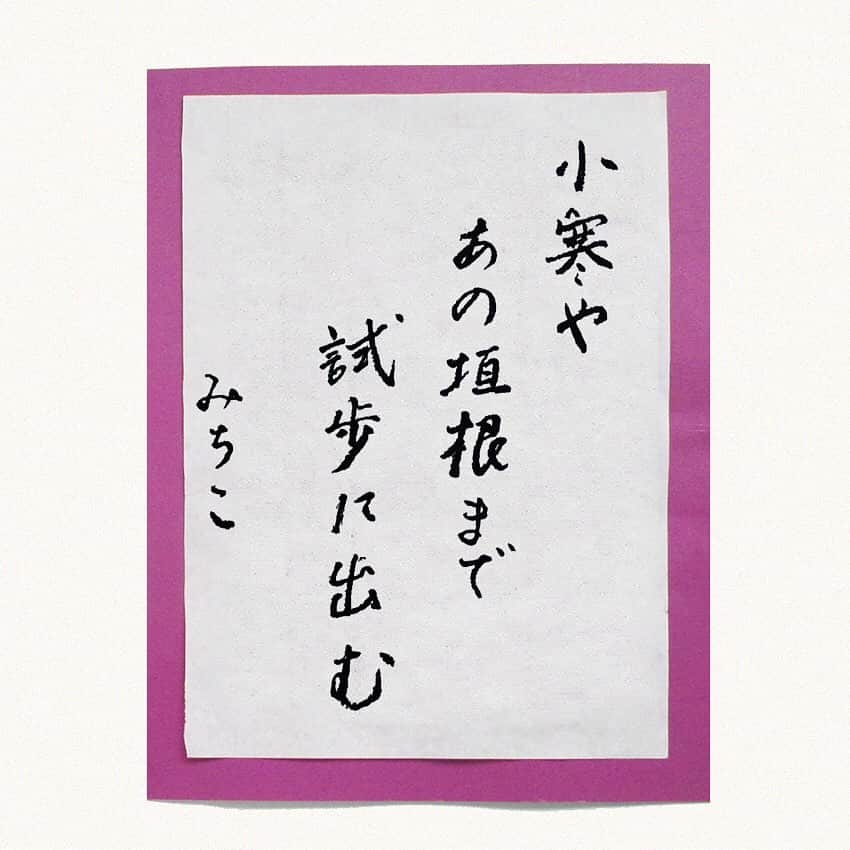 小寒や
あの垣根まで
試歩に出む
みちこ